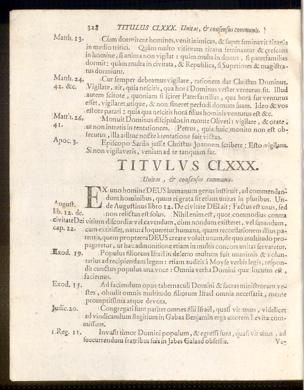 328 TITULUS CLXXX. Unitas, & consensus communis.
Matth. 13. Cùm dormirent homines, venit inimicus, & superseminavit zizania
in medio tritici. Quàm multos vitiorum zizania seminantur & crescunt
in homine, si anima non vigilat: quàm multa in domo, si paterfamilias
dormit: quàm multa in civitate, & Republica, si Supremus & magistra-
tus dormiunt.
Matth. 24. Cur semper debeamus vigilare, rationem dat Christus Dominus.
42. &c. Vigilate, ait, quia nescitis, qua hora Dominus vester venturus sit. Illud
autem scitote, quoniam si sciret Paterfamilias, qua hora fur venturus
esset, vigilaret utique, & non sineret perfodi domum suam. Ideo & vos
estote parati: quia qua nescitis hora filius hominis venturus est &c.
Matth. 26. Monuit Dominus discipulos in monte Oliveti: vigilate, & orate,
41. ut non intretis in tentationem. Petrus, quia huic monito non est ob-
secutus, illa adhuc nocte in tentatione fuit victus.
Apoc. 3. Episcopo Sardis jussit Christus Joannem scribere: Esto vigilans.
Si non vigilaveris, veniam ad te tanquam fur.
TITULUS CLXXX.
Unitas, & consensus communis.
EX uno homine DEUS humanum genus instituit, ad commendan-
dum hominibus, quàm ei grata sit etiam unitas in pluribus. Un-
August. de Augustinus libro 12. De civitate DEI ait: Factus est unus, sed
lib. 12. de non relictus est solus. Nihil enim est, quot commodius contra
civitate Dei vitium discordiæ vel cavendum, cùm nondum existeret, vel sanandum,
cap. 22. cùm extitisset, natura loqueretur humana, quàm recordationem illius pa-
rentis, quem propterea DEUS creare voluit unum, de quo multitudo propa-
garetur, ut hac admonitione etiam in multis concors unitas servaretur.
Exod. 19. Populus filiorum Israël in deserto multum fuit unanimis & volun-
tarius ad recipiendam legem: etenim auditis à Moyse verbis legis, respon-
dit cunctus populus una voce: Omnia verba Domini quæ locutus est,
faciemus.
Exod. 15. Ad faciendum opus tabernaculi Domini & sacras ministrorum ve-
stes, obtulit omnis multitudo filiorum Israël omnia necessaria, mente
promptissima atque devota.
Judic. 20. Congregati sunt pariter omnes filii Israël, quasi vir unus, viderunt
ad vindicandum flagitium in Gabaa Benjamin erga uxorem Levitæ com-
missum.
1. Reg. 11. Invasit timor Domini populum, & egressi sunt, quasi vir unus, ad
succurrendum fratribus suis in Jabes Galaad obsessis.
Ve-